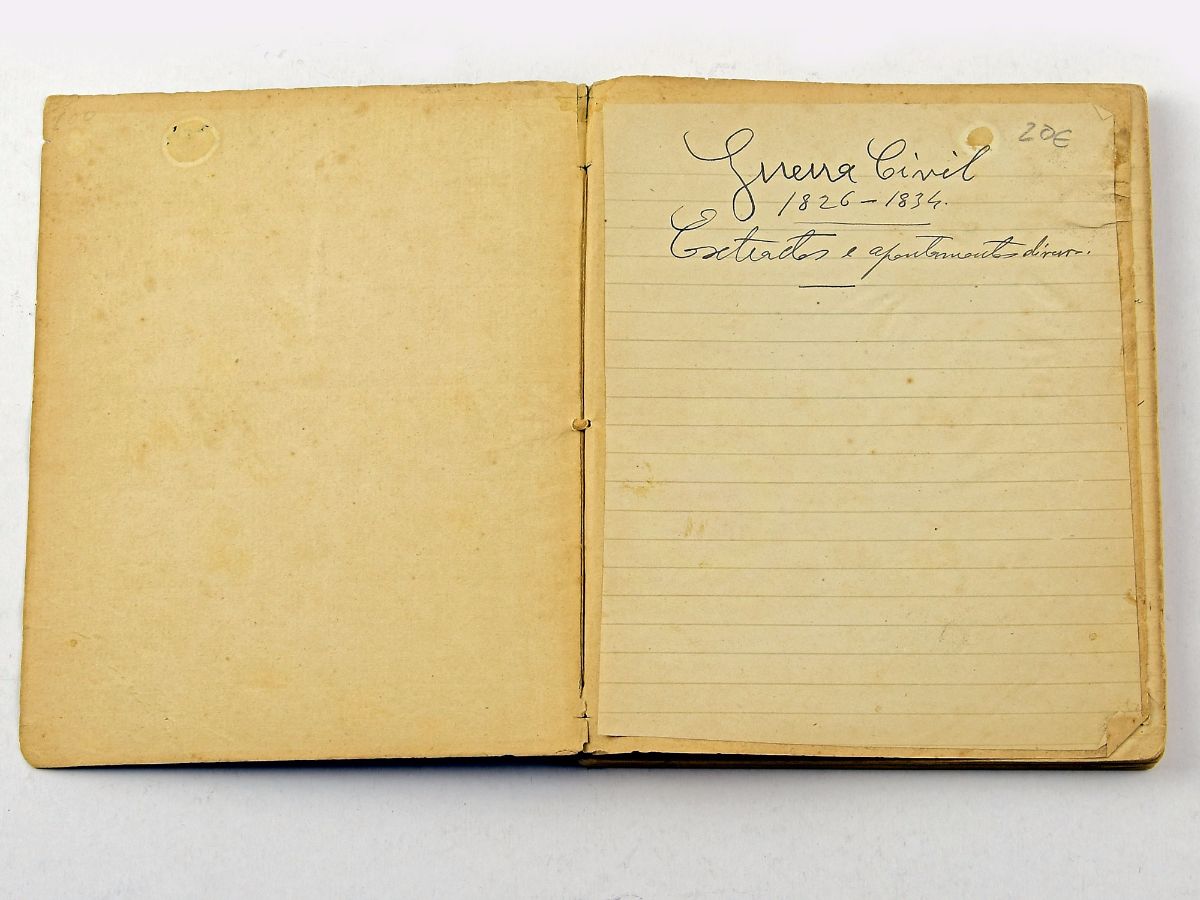 20€
Guerra Civil
1826-1834.
Extractos e apontamentos diversos.